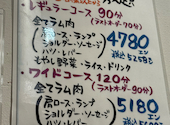 レギュラーコース 90分
(ラストオーダー70分)
全てラム肉
肩ロース・ランプ
ショルダー・ソーセージ
ハツ・レバー
4780
もやし野菜・ライス・ドリンク
・ワイドコース 120分
(ラストオーダー90分)
全てラム肉
肩ロース・ランプ
ショルダー・ソーセージ
ハツ・レバー
5180